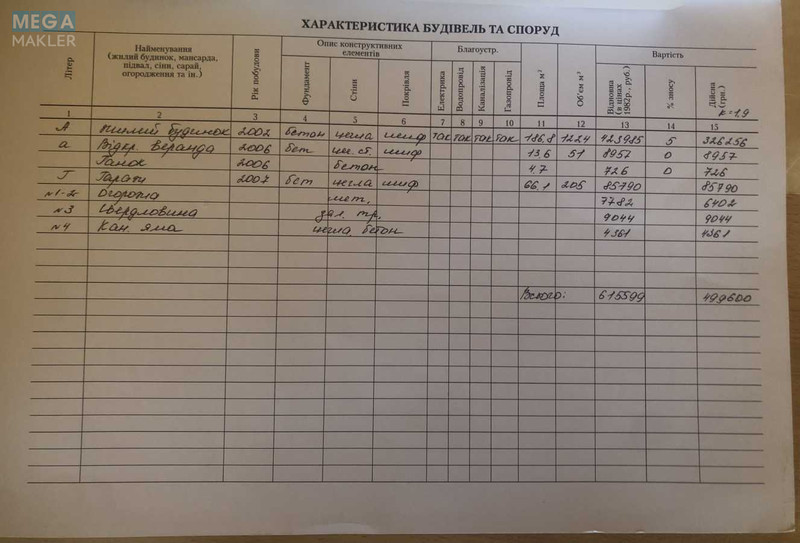 MEGA
MAKLER
ХАРАКТЕРИСТИКА БУДІВЕЛЬ ТА СПОРУД
Літер Найменування (жилий будинок, мансарда, підвал, сіни, сарай, огородження та ін.) Рік побудови Опис конструктивних елементів Благоустр. Площа м² Об'єм м³ Вартість
Фундамент Стіни Покрівля Електрика Водопровід Каналізація Газопровід Відновна (в цінах 1982р., руб.) % зносу Дійсна (грн.)
к=1,9
1 2 3 4 5 6 7 8 9 10 11 12 13 14 15
А жилий будинок 2002 бетон цегла шиф так так так так 186,8 1224 5
а Відкр. веранда 2006 бет шиф 13,6 51 8957 0 8957
Ганок 2006 бетон 4,7 726 0 726
Г Гараж бет цегла шиф 66,1 205 85790 85790
№1-2 Огорожа мет. 7782 6402
№3 Свердловина зал. тр. 9044 9044
№4 Кан. яма цегла бетон 4361 4361
Всього: 615599 499600